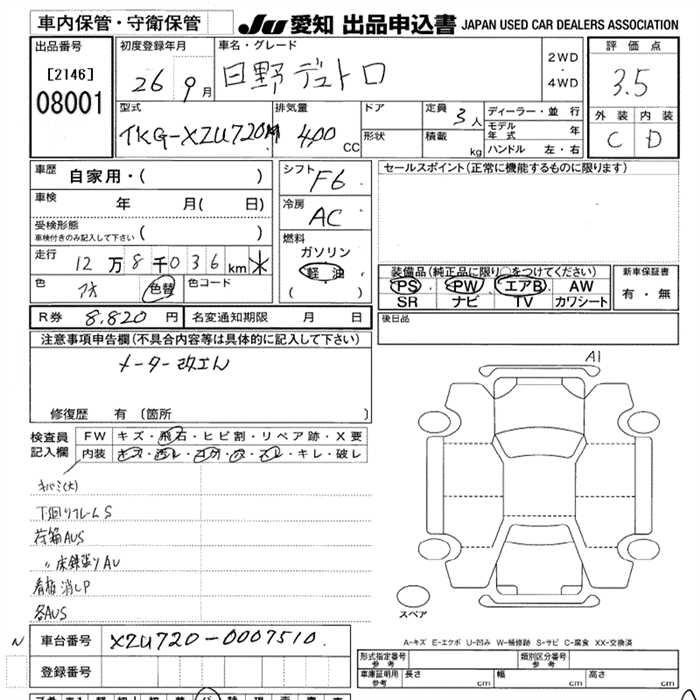 車内保管・守衛保管
JU 愛知 出品申込書 JAPAN USED CAR DEALERS ASSOCIATION
出品番号
[2146]
08001
初度登録年月
26 9月
車名・グレード
日野デュトロ
2WD
・
4WD
評価点
3.5
外装 内装
C D
型式
TKG-XZU720M
排気量
400 cc
ドア
形状
定員
3人
積載
kg
ディーラー・並 行
モデル年式 年
ハンドル 左・右
車歴
自家用・( )
車検
年 月( 日)
受検形態
車検付きのみ記入して下さい ( )
走行
12万8千036km
色
色替
色コード
シフト
F6
冷房
AC
燃料
ガソリン
軽油
( )
セールスポイント(正常に機能するものに限ります)
装備品(純正品に限り○をつけてください)
PS PW エアB AW
SR ナビ TV カワシート
新車保証書
有・無
R券 8,820 円
名変通知期限 月 日
後日品
注意事項申告欄(不具合内容等は具体的に記入して下さい)
メーター改エん
修復歴 有 (箇所 )
検査員記入欄
FW キズ・飛石・ヒビ割・リペア跡・X要
内装 キズ・汚レ・コゲ・穴・スレ・キレ・破レ
キバミ(大)
下廻りフレームS
荷箱AUS
〃床鉄張りAU
看板消しP
各AUS
A1
スペア
N
車台番号 XZU720-0007510
登録番号
A-キズ E-エクボ U-凹み W-補修跡 S-サビ C-腐食 XX-交換済
形式指定番号 参考
類別区分番号 参考
車庫証明用 参考
長さ cm 幅 cm 高さ cm